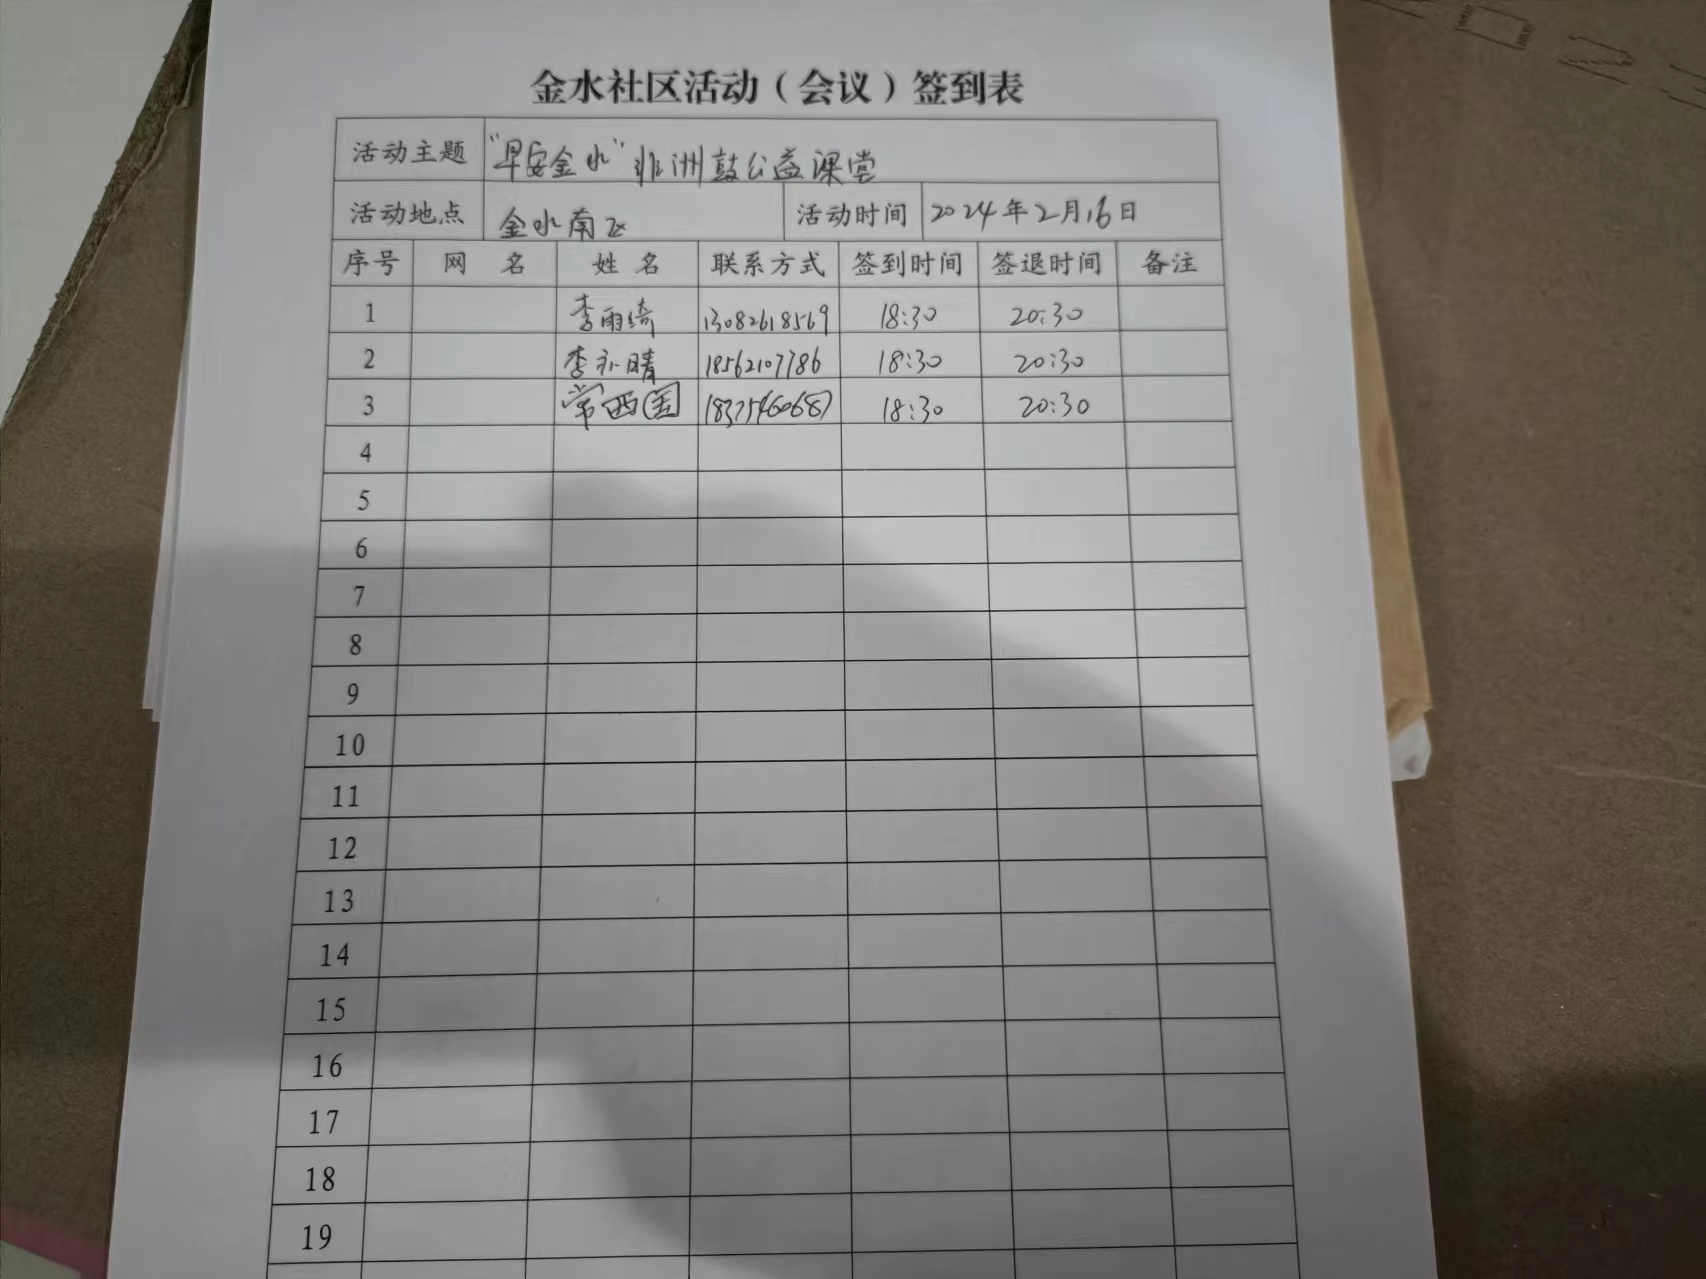 金水社区活动（会议）签到表
活动主题 "早安金水"非洲鼓公益课堂
活动地点 金水南区 活动时间 2024年2月16日
序号 网 名 姓 名 联系方式 签到时间 签退时间 备注
1 李雨绮 13082618569 18:30 20:30
2 李永晴 18562107786 18:30 20:30
3 常西国 18:30 20:30
4
5
6
7
8
9
10
11
12
13
14
15
16
17
18
19